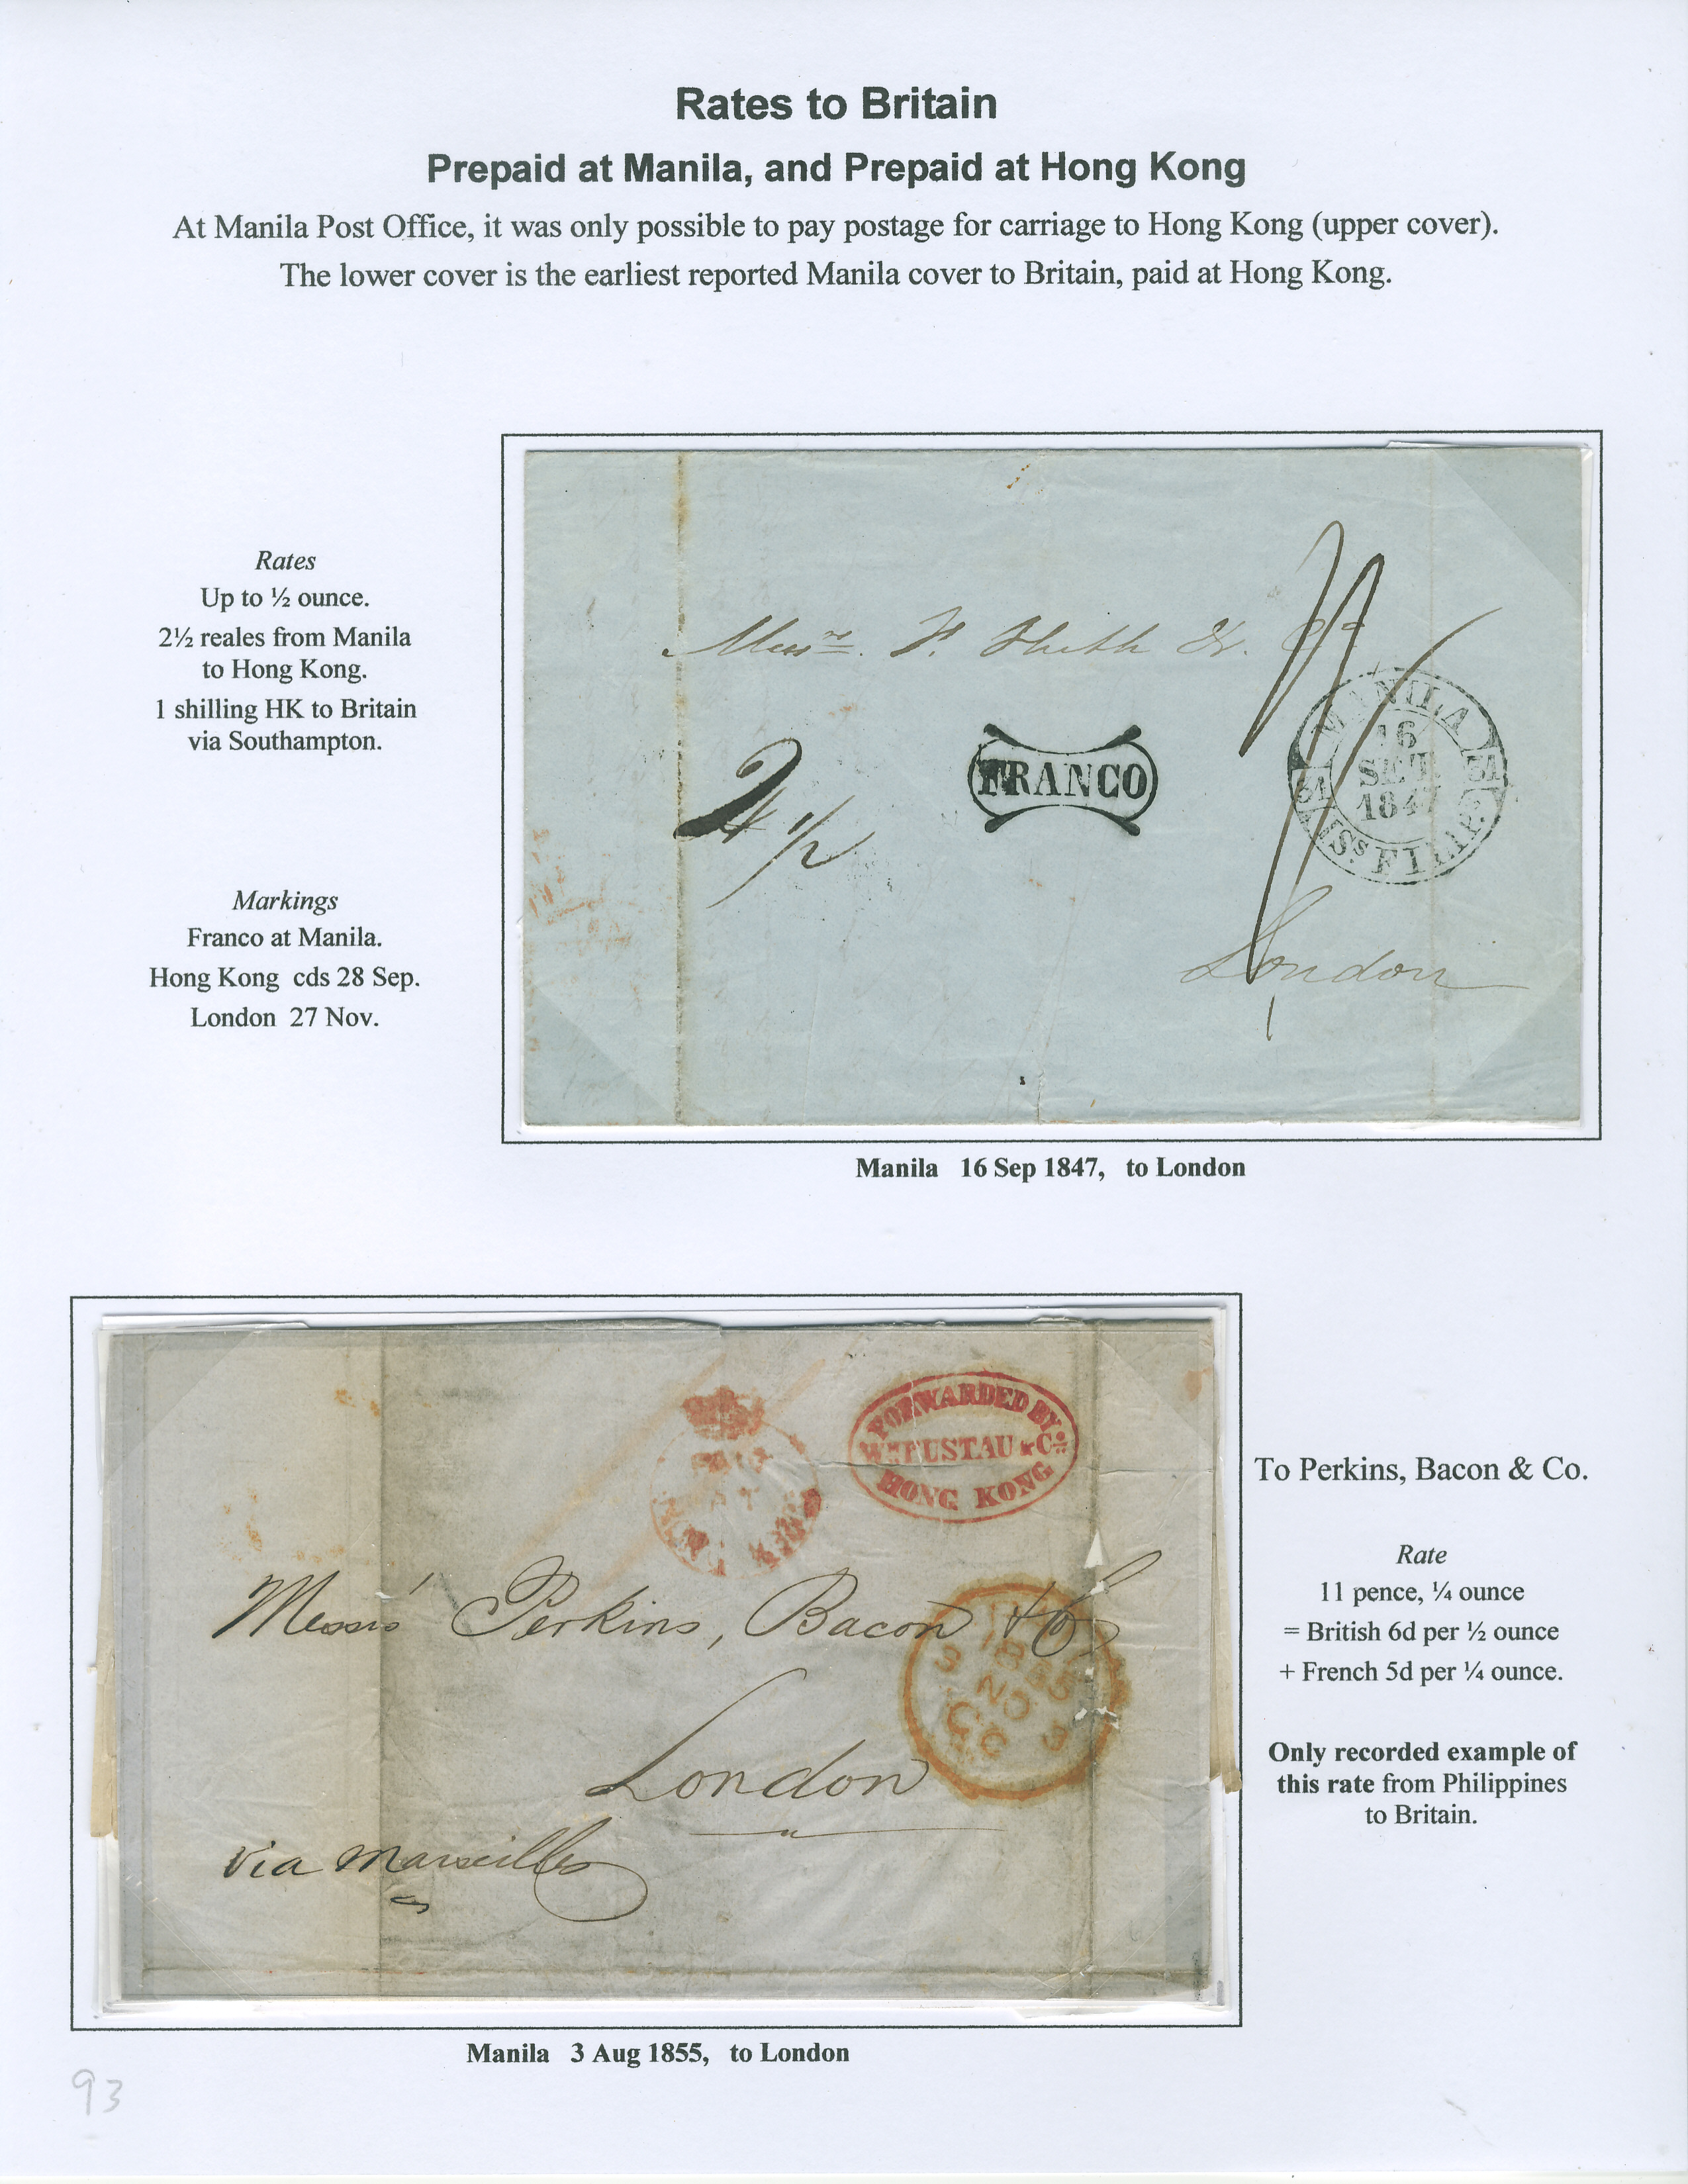 Rates to Britain
Prepaid at Manila, and Prepaid at Hong Kong
At Manila Post Office, it was only possible to pay postage for carriage to Hong Kong (upper cover).
The lower cover is the earliest reported Manila cover to Britain, paid at Hong Kong.
Rates
Up to ½ ounce.
2½ reales from Manila
to Hong Kong.
1 shilling HK to Britain
via Southampton.
Markings
Franco at Manila.
Hong Kong cds 28 Sep.
London 27 Nov.
Messrs. & Co
2 ½
FRANCO
MANILA
16
SET.
1847
51 51
ISs FILIP.s
London
Manila 16 Sep 1847, to London
PAID
AT
FORWARDED BY
Wm PUSTAU & Co
HONG KONG
Messrs Perkins, Bacon & Co
1855
3 NO 3
London
via Marseilles
To Perkins, Bacon & Co.
Rate
11 pence, ¼ ounce
= British 6d per ½ ounce
+ French 5d per ¼ ounce.
Only recorded example of
this rate from Philippines
to Britain.
Manila 3 Aug 1855, to London
93